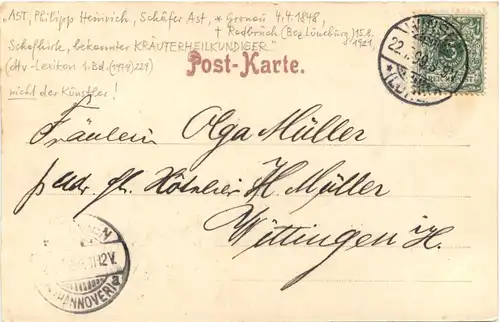 AST, Philipp Heinrich, Schäfer Ast, * Gronau 4.4.1848,
† Radbruch (Bez. Lüneburg) 15.8.1921,
bekannter KRÄUTERHEILKUNDIGER"
(Hv-Lexikon 1. Bd. (1979) 229)
nicht der Künstler!
Post-Karte.
WINSE
22.
(LU
Fräulein Olga Müller
H. Müller
Wittingen i/H.
12V.
(HANNOVER) a